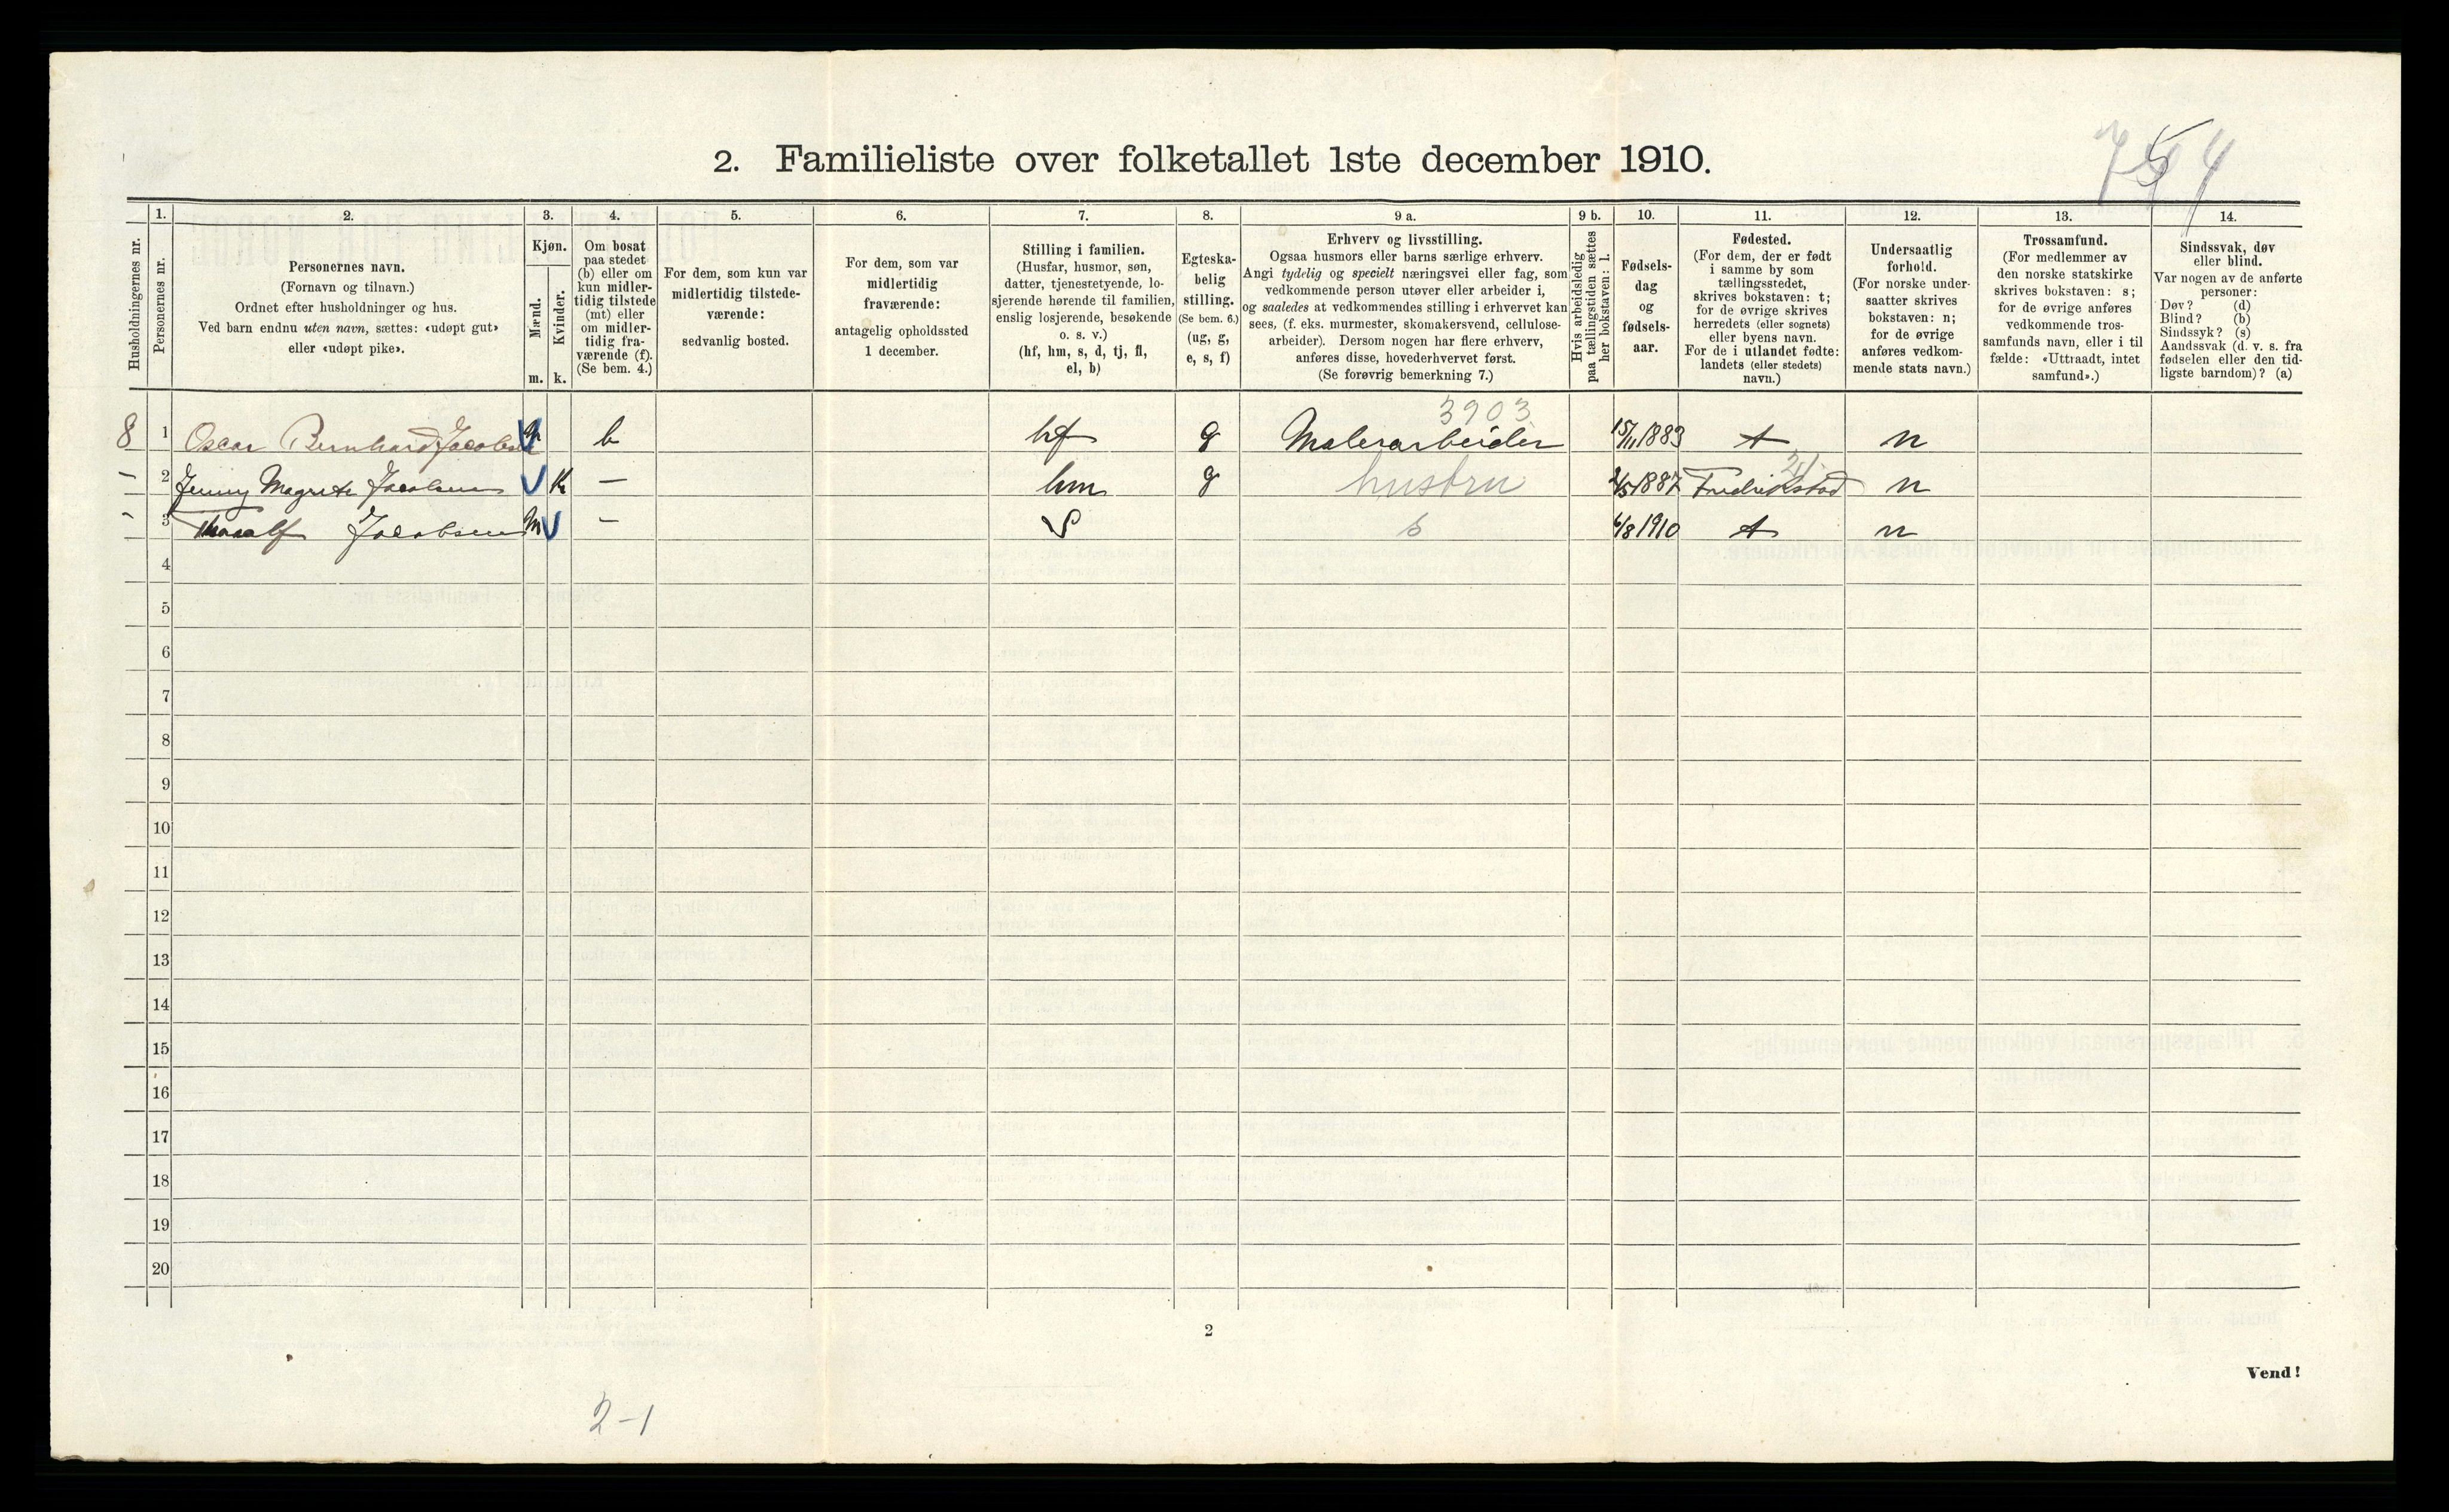 754
2. Familieliste over folketallet 1ste december 1910.
Husholdningernes nr.
1. Personernes nr.
2. Personernes navn. (Fornavn og tilnavn.) Ordnet efter husholdninger og hus. Ved barn endnu uten navn, sættes: «udøpt gut» eller «udøpt pike».
3. Kjøn. Mænd. m. Kvinder. k.
4. Om bosat paa stedet (b) eller om kun midlertidig tilstede (mt) eller om midlertidig fraværende (f). (Se bem. 4.)
5. For dem, som kun var midlertidig tilstedeværende: sedvanlig bosted.
6. For dem, som var midlertidig fraværende: antagelig opholdssted 1 december.
7. Stilling i familien. (Husfar, husmor, søn, datter, tjenestetyende, losjerende hørende til familien, enslig losjerende, besøkende o. s. v.) (hf, hm, s, d, tj, fl, el, b)
8. Egteskabelig stilling. (Se bem. 6.) (ug, g, e, s, f)
9 a. Erhverv og livsstilling. Ogsaa husmors eller barns særlige erhverv. Angi tydelig og specielt næringsvei eller fag, som vedkommende person utøver eller arbeider i, og saaledes at vedkommendes stilling i erhvervet kan sees, (f. eks. murmester, skomakersvend, cellulosearbeider). Dersom nogen har flere erhverv, anføres disse, hovederhvervet først. (Se forøvrig bemerkning 7.)
9 b. Hvis arbeidsledig paa tællingstiden sættes her bokstaven: l.
10. Fødselsdag og fødselsaar.
11. Fødested. (For dem, der er født i samme by som tællingsstedet, skrives bokstaven: t; for de øvrige skrives herredets (eller sognets) eller byens navn. For de i utlandet fødte: landets (eller stedets) navn.)
12. Undersaatlig forhold. (For norske undersaatter skrives bokstaven: n; for de øvrige anføres vedkommende stats navn.)
13. Trossamfund. (For medlemmer av den norske statskirke skrives bokstaven: s; for de øvrige anføres vedkommende trossamfunds navn, eller i tilfælde: «Uttraadt, intet samfund».)
14. Sindssvak, døv eller blind. Var nogen av de anførte personer: Døv? (d) Blind? (b) Sindssyk? (s) Aandssvak (d. v. s. fra fødselen eller den tidligste barndom)? (a)
3903
8 1 Oscar Bernhard Jacobsen m b hf g Malerarbeider 15/11 1883 t n
- 2 Jenny Magrete Jacobsen k - hm g hustru 2/5 1887 Fredrikstad n
- 3 Jacobsen m - S s 6/8 1910 t n
4
5
6
7
8
9
10
11
12
13
14
15
16
17
18
19
20
2
Vend!
2-1